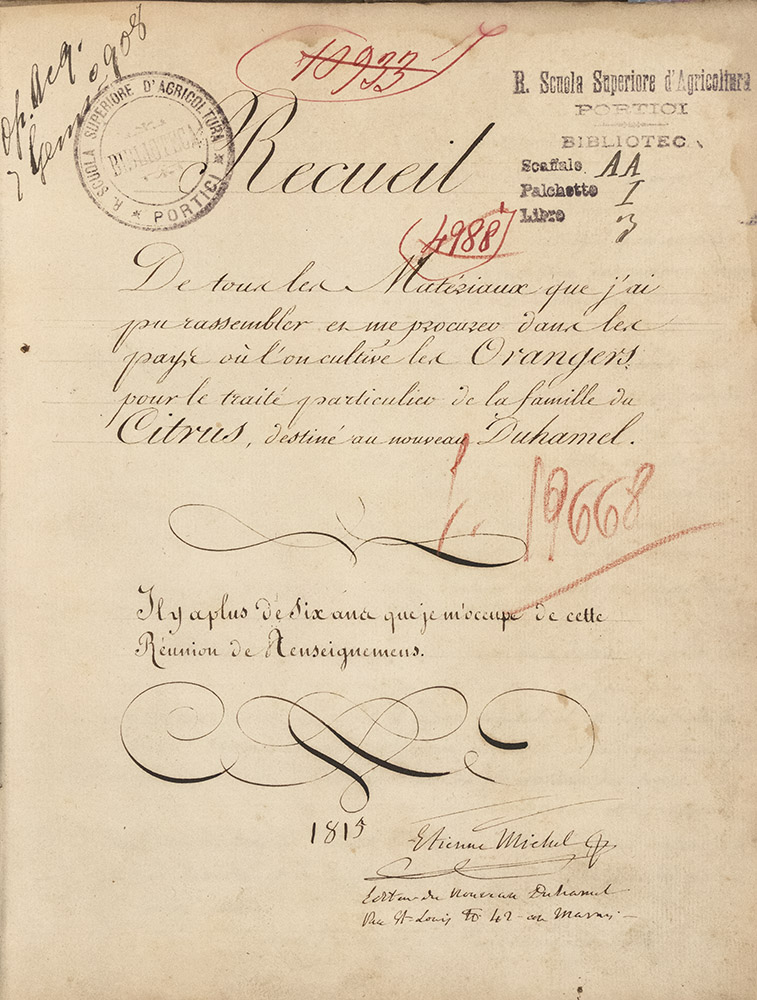 Op. Acq.
7 Genn. 908
10933
R. SCUOLA SUPERIORE D'AGRICOLTURA
BIBLIOTECA
* PORTICI *
R. Scuola Superiore d'Agricoltura
PORTICI
BIBLIOTEC
Scaffale AA
Palchetto I
Libro 3
Recueil
4988
De tous les Matériaux que j'ai
pu rassembler et me procurer dans les
pays où l'on cultive les Orangers,
pour le traité particulier de la famille du
Citrus, destiné au nouveau Duhamel.
19668
Il y a plus de six ans que je m'occupe de cette
Réunion de Renseignemens.
1815
Etienne Michel
Editeur du Nouveau Duhamel
Rue St Louis No 42 au Marais